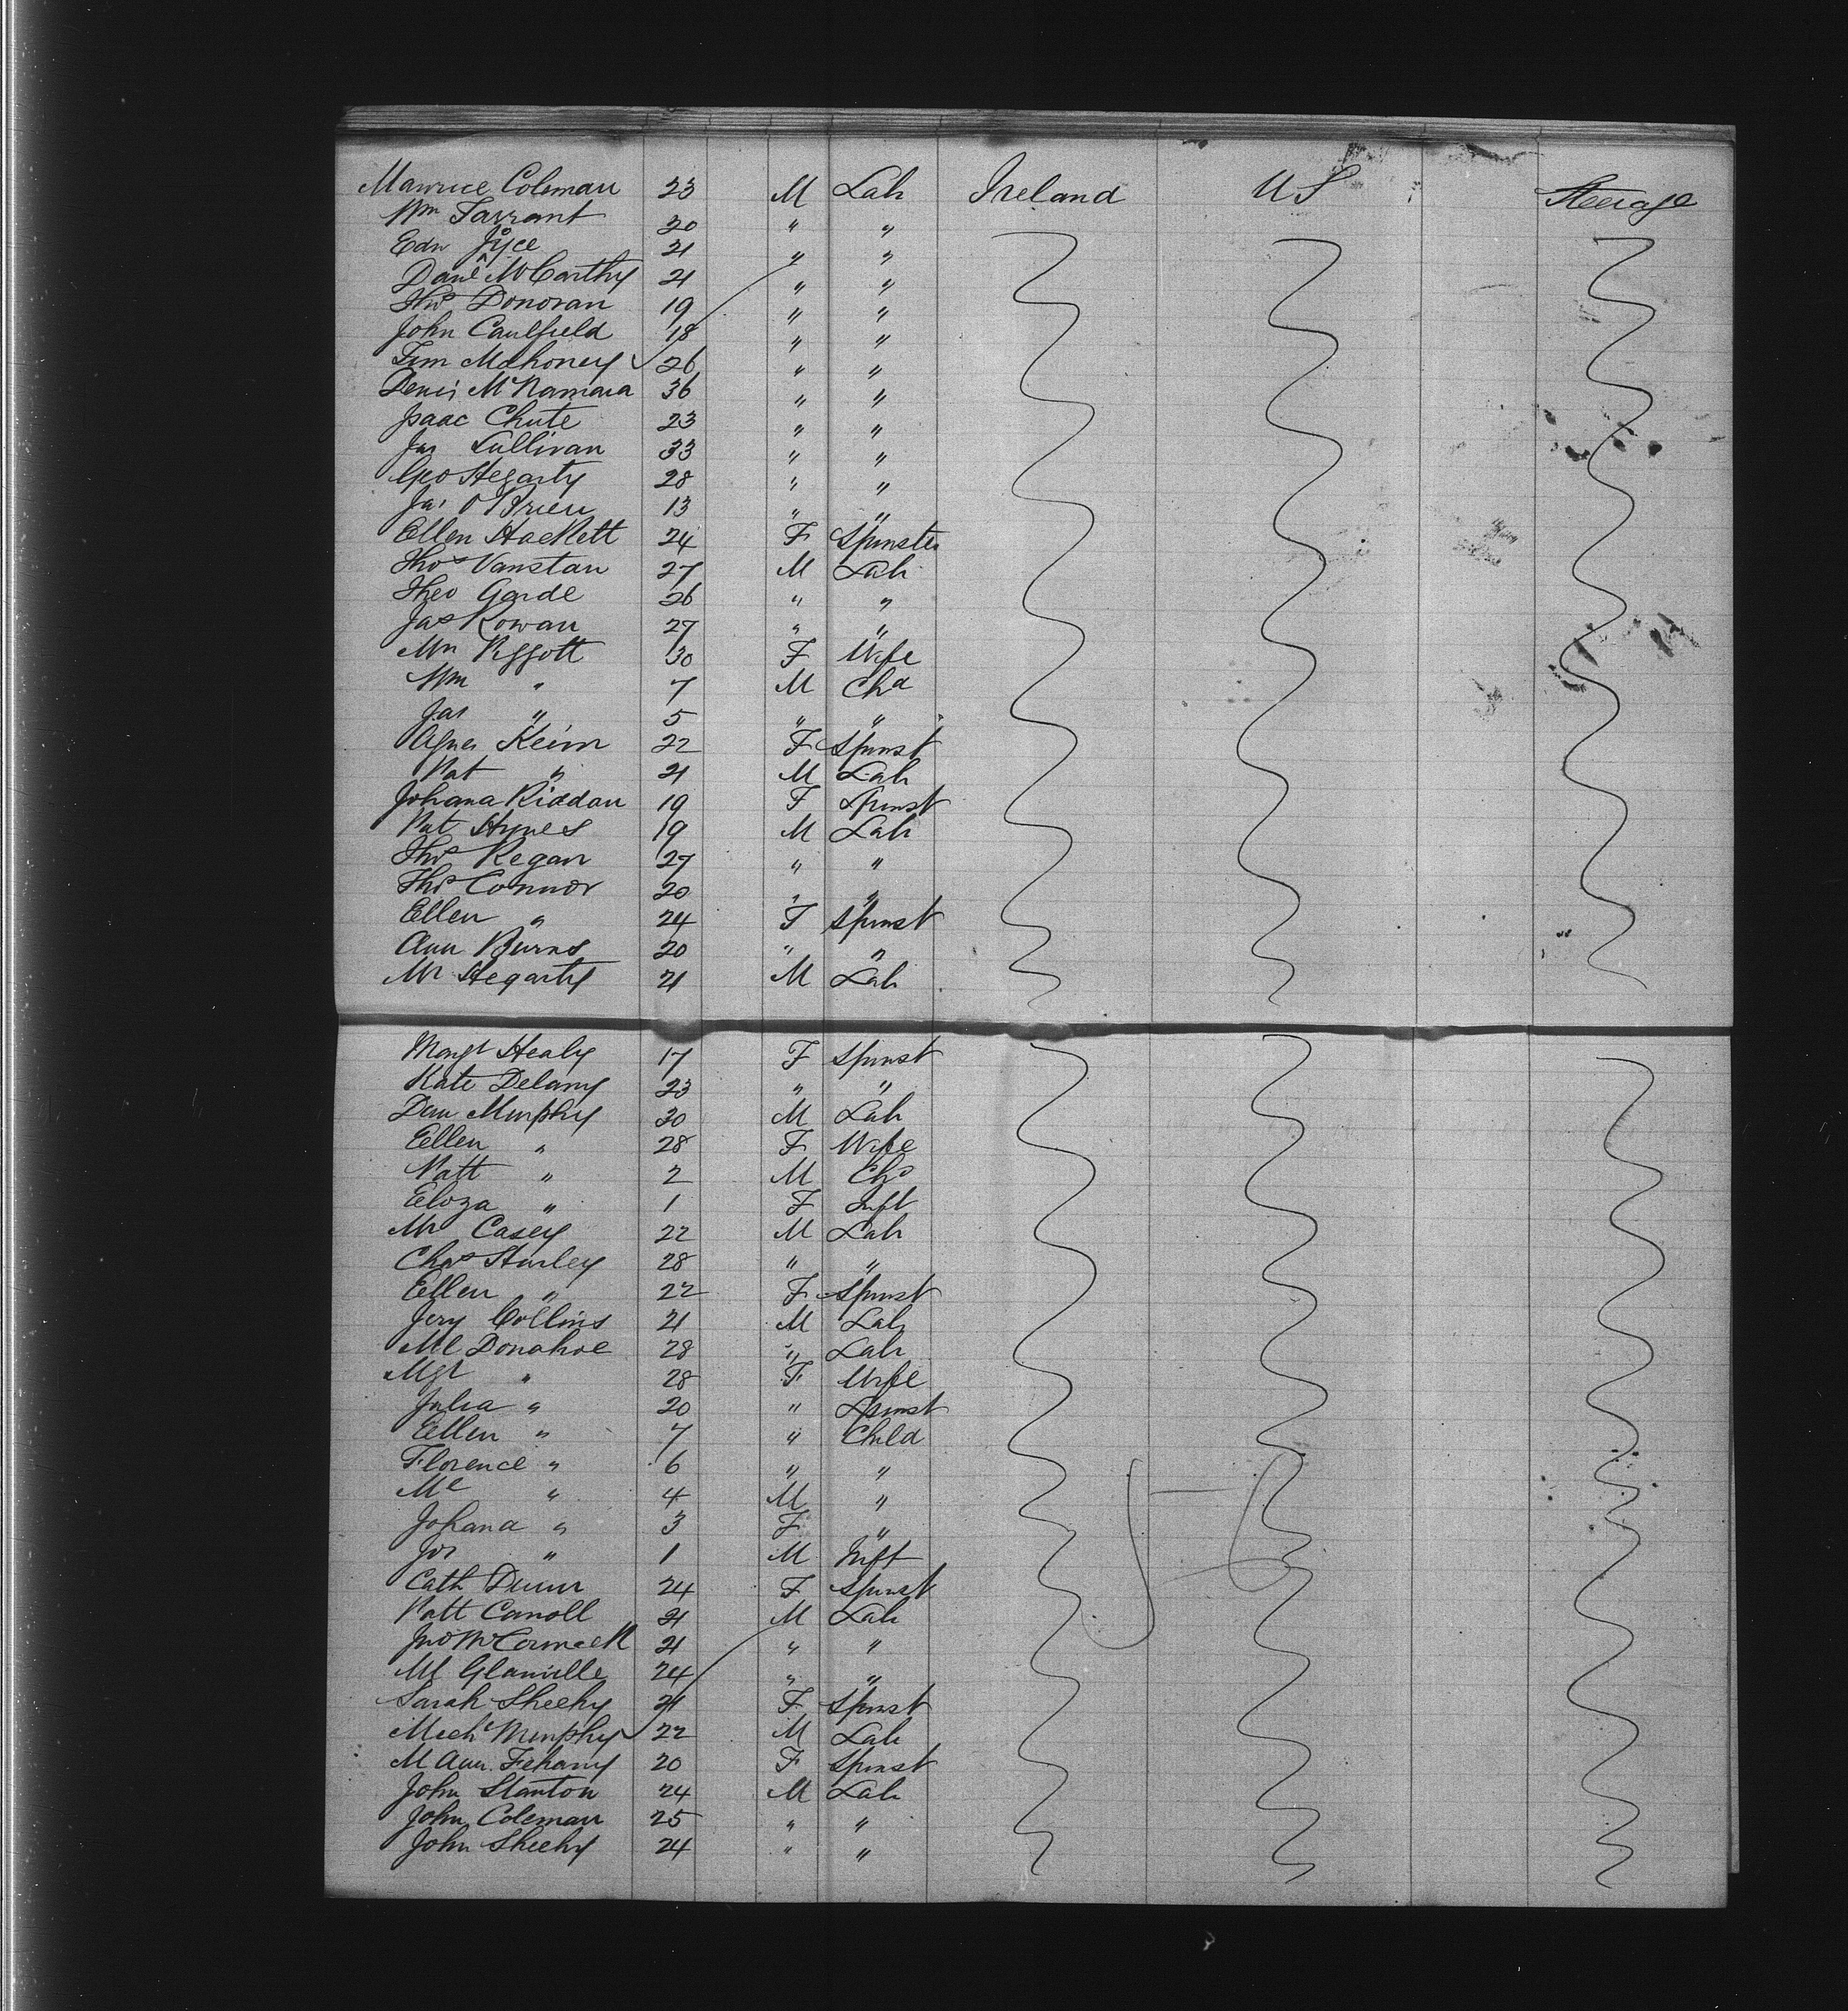 Maurice Coleman 23 M Lab Ireland US Steerage
Wm Tarrant 20 " "
Edw Joyce 21 " "
Danl McCarthy 21 " "
Thos Donovan 19 " "
John Caulfield 18 " "
Tim Mahoney 26 " "
Denis McNamara 36 " "
Isaac Chute 23 " "
Jas Sullivan 33 " "
Geo Hegarty 28 " "
Jas O'Brien 13 " "
Ellen Hackett 24 F Spinster
Thos Vanstan 27 M Lab
Theo Garde 26 " "
Jas Rowan 27 " "
Mrs Piggott 30 F Wife
Wm " 7 M Chd
Jas " 5 " "
Agnes Keim 22 F Spinst
Pat " 21 M Lab
Johana Riddan 19 F Spinst
Pat Hynes 19 M Lab
Thos Regan 27 " "
Thos Connor 20 " "
Ellen " 24 F Spinst
Ann Burns 20 " "
Ml Hegarty 21 M Lab
Margt Healy 17 F Spinst
Kate Delany 23 " "
Dan Murphy 30 M Lab
Ellen " 28 F Wife
Patt " 2 M Chd
Eliza " 1 F Inft
Ml Casey 22 M Lab
Chas Hurley 28 " "
Ellen " 22 F Spinst
Jery Collins 21 M Lab
Ml Donahoe 28 " Lab
Mgt " 28 F Wife
Julia " 20 " Spinst
Ellen " 7 " Child
Florence " 6 " "
Ml " 4 M "
Johana " 3 F "
Jos " 1 M Inft
Cath Dunn 24 F Spinst
Patt Carroll 21 M Lab
Jno McCormack 21 " "
Ml Glanville 24 " "
Sarah Sheehy 21 F Spinst
Michl Murphy 22 M Lab
M Ann Fehany 20 F Spinst
John Stanton 24 M Lab
John Coleman 25 " "
John Sheehy 24 " "